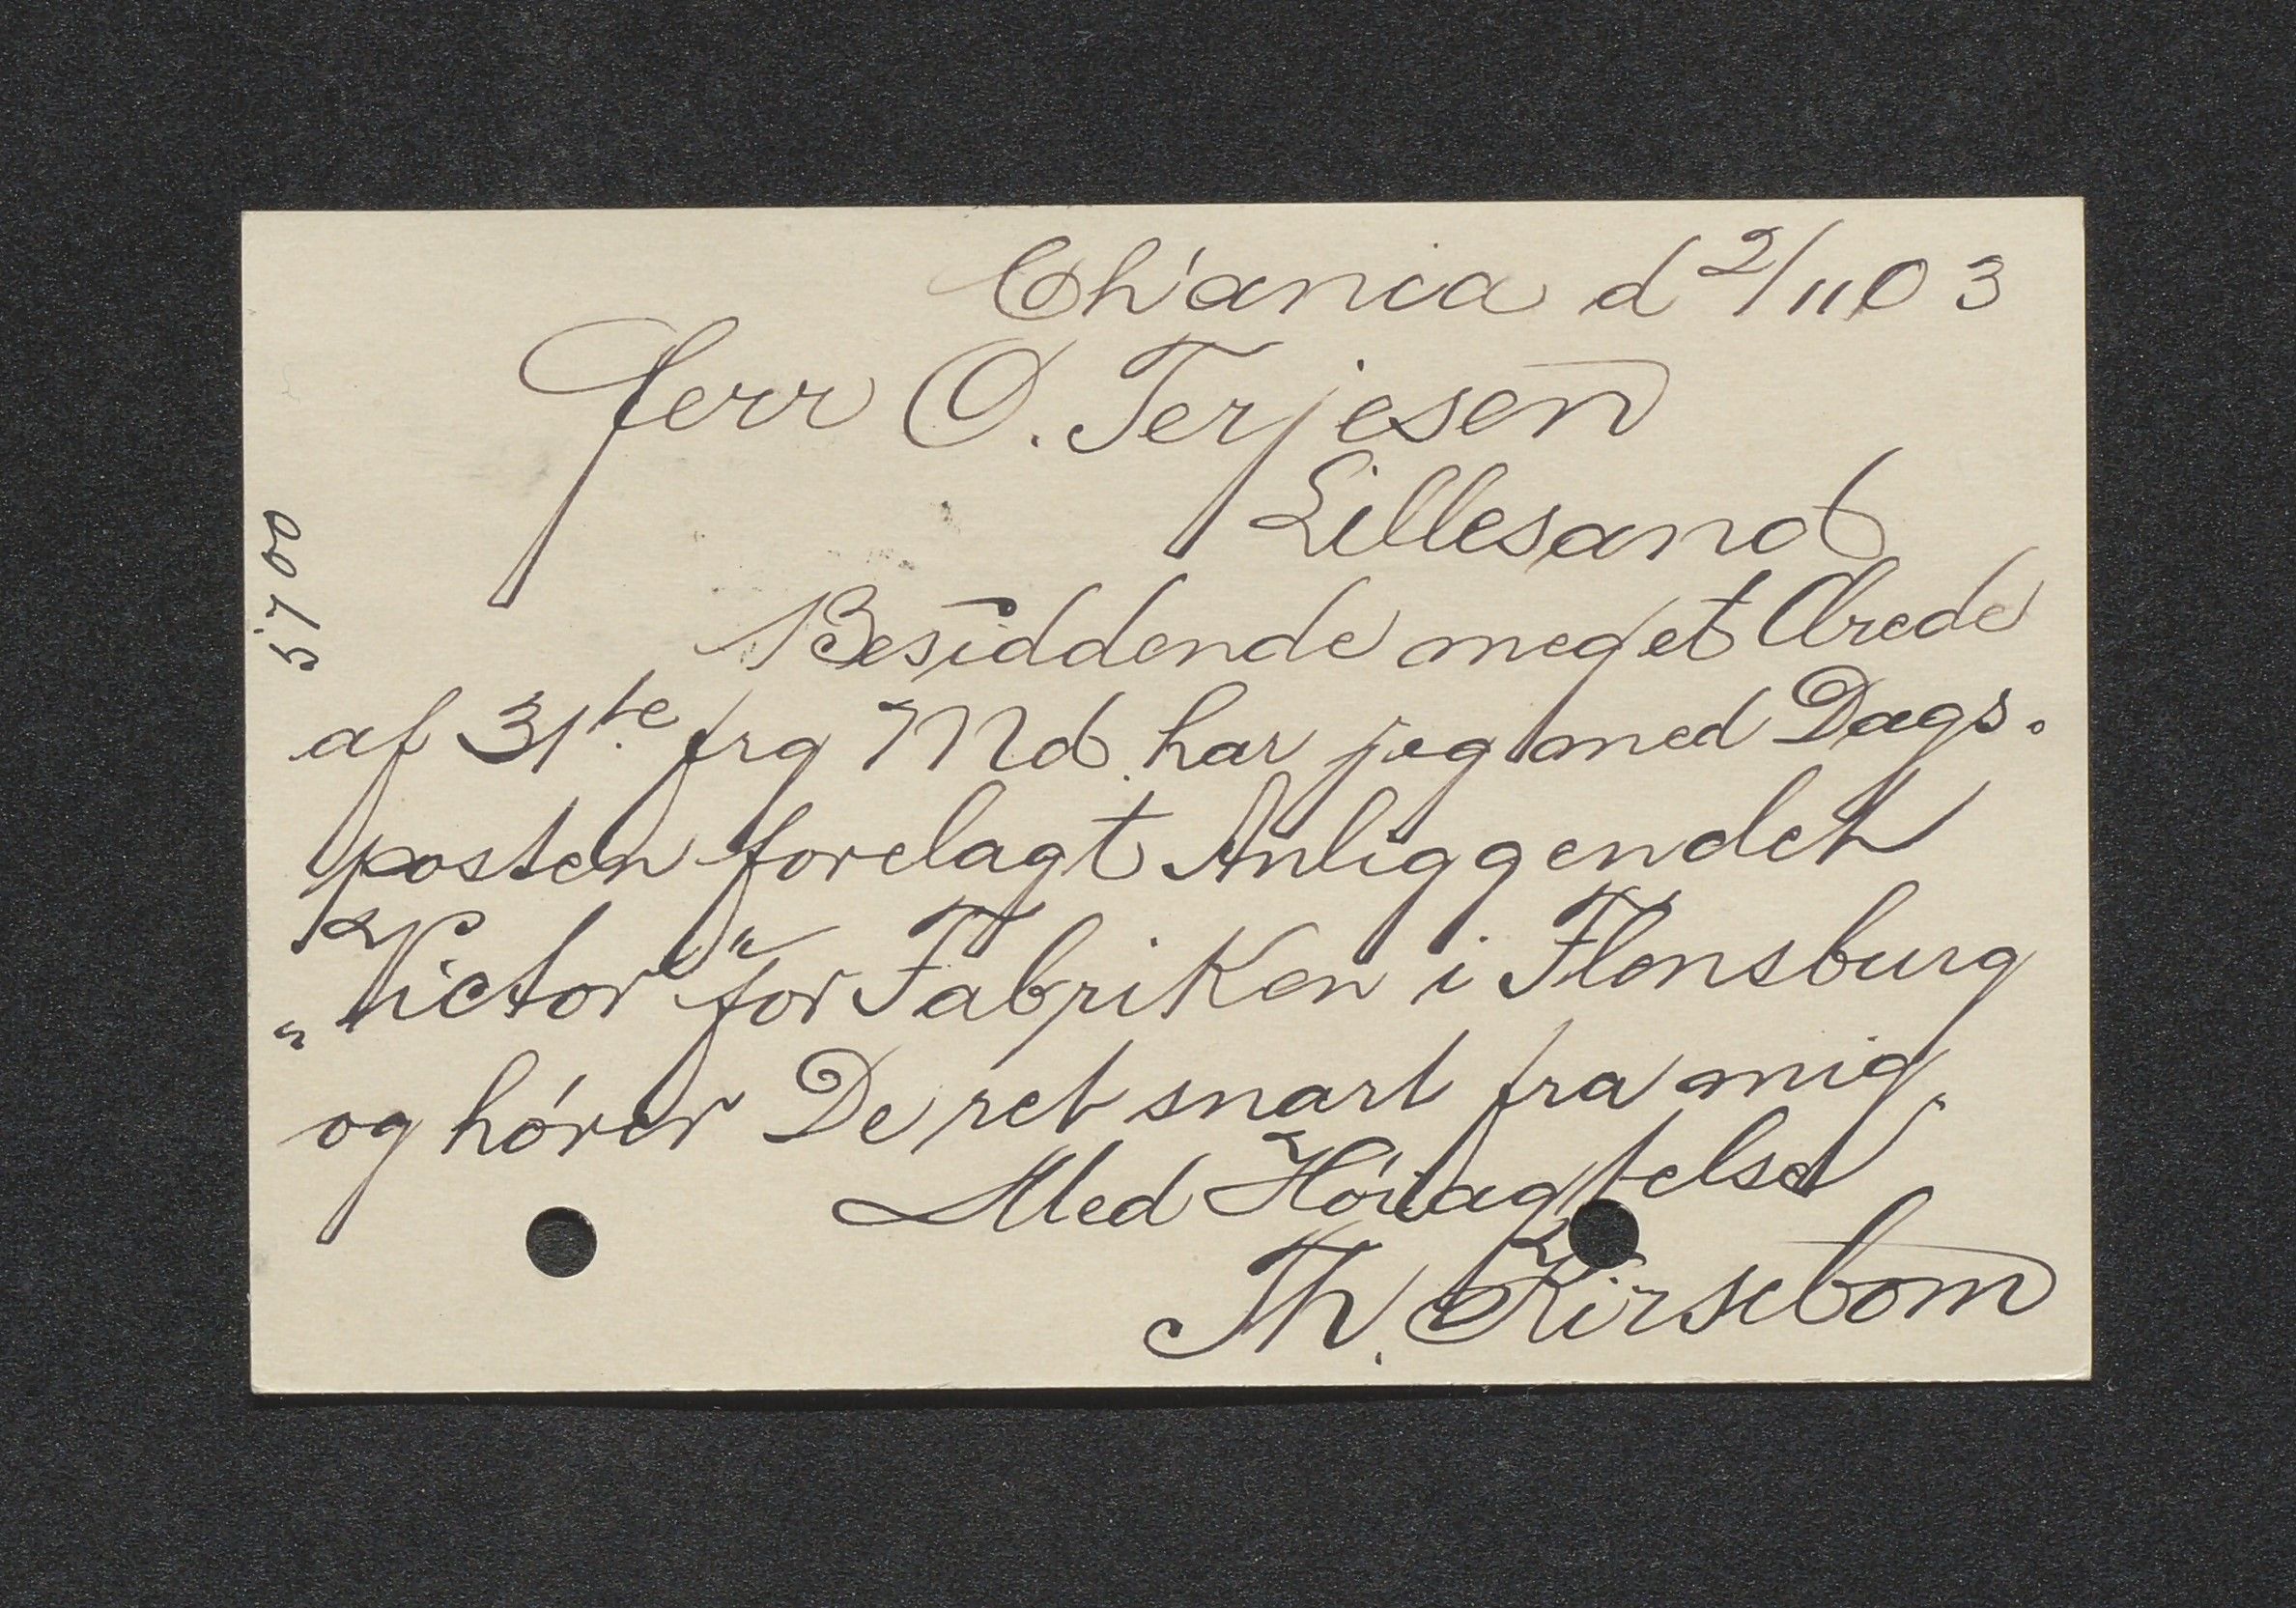 Ch'ania d 2/11 03
Herr O. Terjesen
Lillesand
Besiddende meget Ærede
af 31te frg Md. har jeg med Dags-
posten forelagt Anliggendet
"Victor" for Fabriken i Flensburg
og hörer De ret snart fra mig.
Med Höiagtelse
Th. Kirsebom
5700